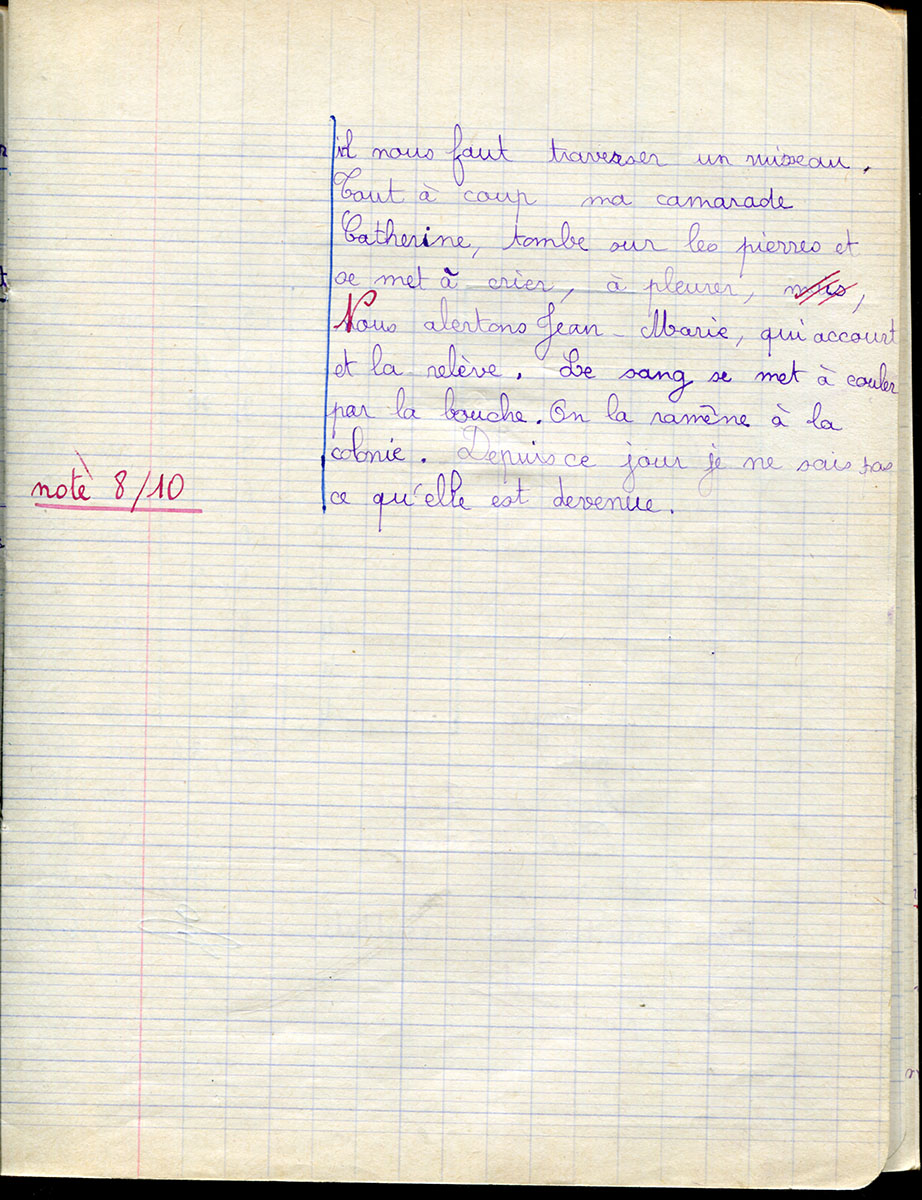 il nous faut traverser un ruisseau.
Tout à coup ma camarade
Catherine, tombe sur les pierres et
se met à crier, à pleurer, ,
Nous alertons Jean-Marie, qui accourt
et la relève. Le sang se met à couler
par la bouche. On la ramène à la
colonie. Depuis ce jour je ne sais pas
noté 8/10
ce qu'elle est devenue.